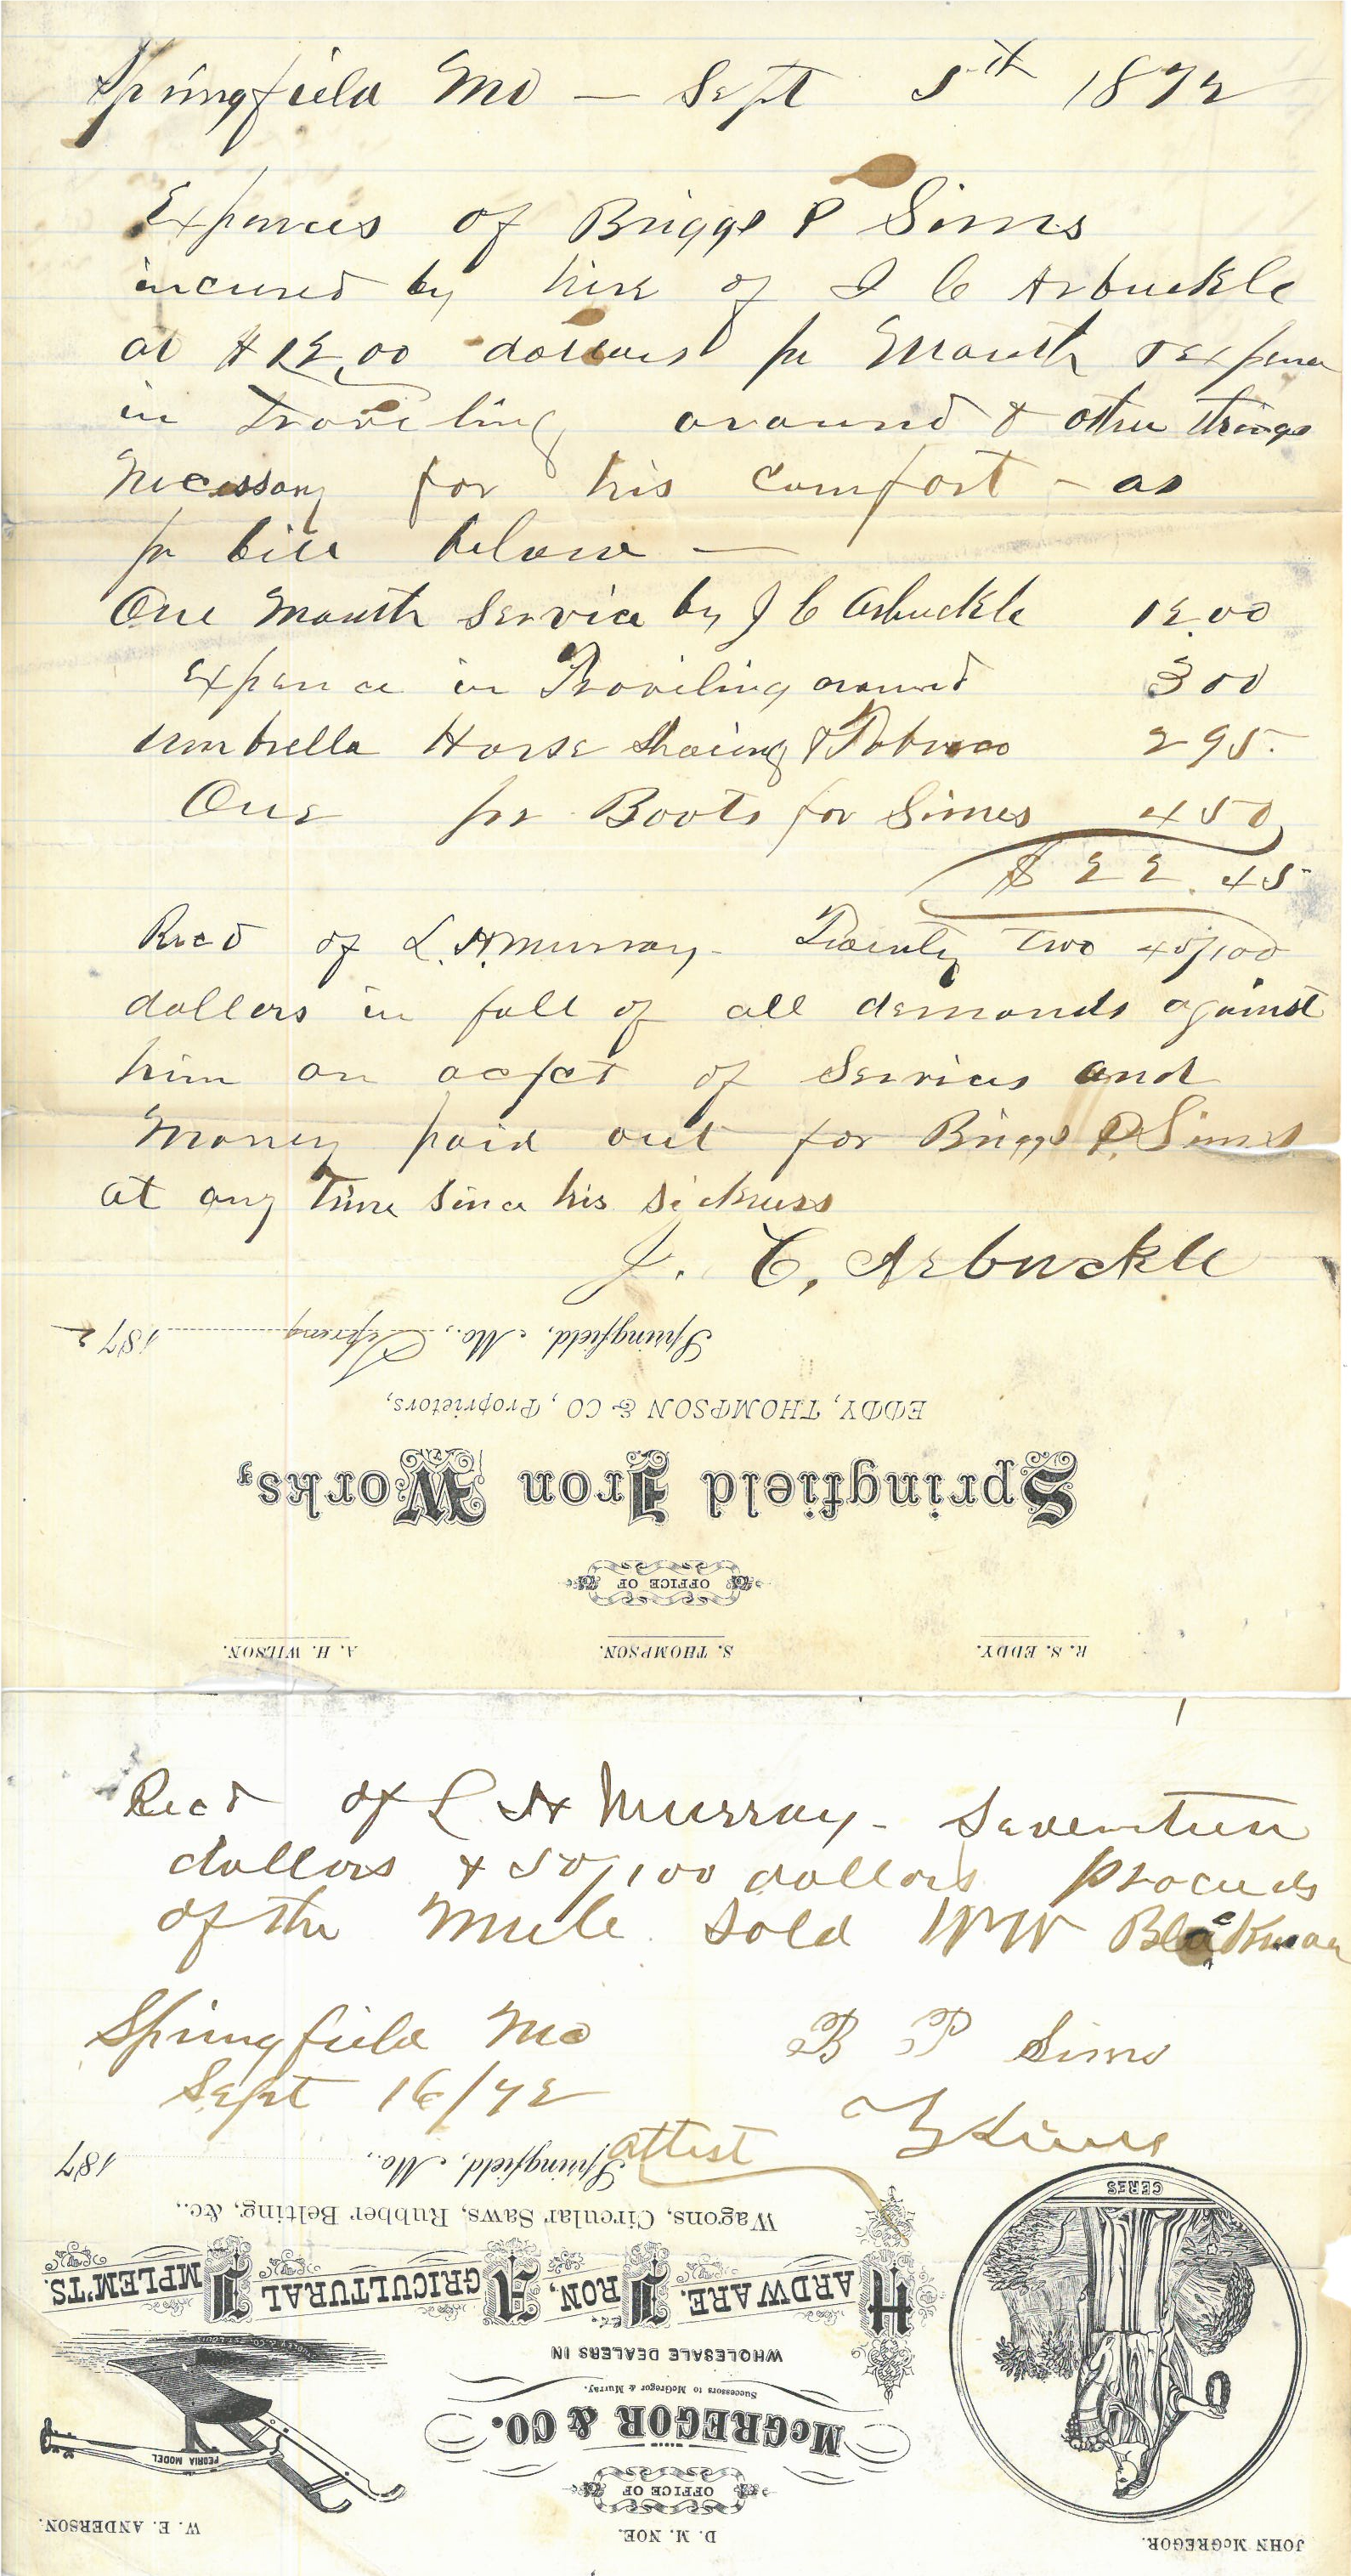 Springfield Mo — Sept 5th 1872
Expences of Briggs P Sims
incured by hire of J C Arbuckle
at $12.00 dollars pr Month & expence
in Traveling around & other things
Necessary for his comfort – as
pr bill below —
One Month Service by J C Arbuckle 12.00
Expence in Traveling around 3 00
Umbrella Horse Shoeing & Tobacco 2 95
One pr Boots for Simes 4 50
$ 22.45
Recd of L. H. Murray – Twenty Two 45/100
dollers in full of all demands against
him on acfct of Services and
Money paid out for Briggs P. Simes
at any Time Since his Sickness
J. C. Arbuckle
Springfield, Mo., 187 2
EDDY, THOMPSON & CO, Proprietors,
Springfield Iron Works,
OFFICE OF
R. S. EDDY. S. THOMPSON. A. H. WILSON.
Recd of L H Murray – Seventeen
dollars & 50/100 dollars proceeds
of the Mule Sold WW Blackman
Springfield Mo B P Sims
Sept 16/72
attest
Springfield, Mo., 187
Wagons, Circular Saws, Rubber Belting, &c.,
HARDWARE, IRON, AGRICULTURAL IMPLEM'TS.
WHOLESALE DEALERS IN
Successors to McGregor & Murray.
McGREGOR & CO.
OFFICE OF
CERES
PEORIA MODEL
JOHN McGREGOR. D. M. NOE. W. E. ANDERSON.